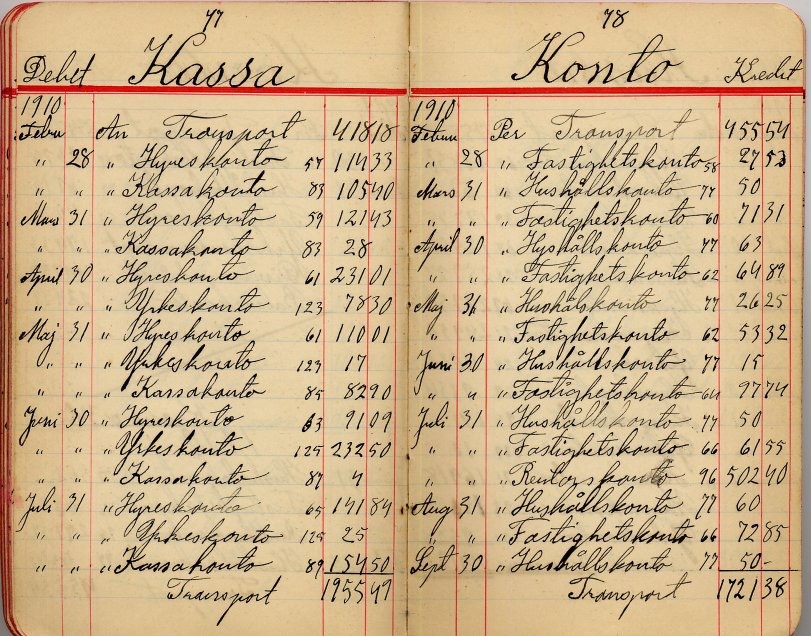 77
Debet Kassa
1910
Febru An Transport 418 18
" 28 " Hyreskonto 57 114 33
" " " Kassakonto 83 105 40
Mars 31 " Hyreskonto 59 121 43
" " " Kassakonto 83 28
April 30 " Hyreskonto 61 231 01
" " " Yrkeskonto 123 78 30
Maj 31 " Hyreskonto 61 110 01
" " " Yrkeskonto 123 17
" " " Kassakonto 85 82 90
Juni 30 " Hyreskonto 63 91 09
" " " Yrkeskonto 125 232 50
" " " Kassakonto 87 4
Juli 31 " Hyreskonto 65 141 84
" " " Yrkeskonto 125 25
" " " Kassakonto 89 154 50
Transport 1955 49
78
Konto Kredit
1910
Per Transport 455 54
" 28 " Fastighetskonto 58 27 53
Mars 31 " Hushållskonto 77 50
" " " Fastighetskonto 60 71 31
April 30 " Hushållskonto 77 63
" " " Fastighetskonto 62 64 89
Maj 31 " Hushålskonto 77 26 25
" " " Fastighetskonto 62 53 32
Juni 30 " Hushållskonto 77 15
" " " Fastighetskonto 64 97 74
Juli 31 " Hushållskonto 77 50
" " " Fastighetskonto 66 61 55
" " " konto 96 502 40
Aug 31 " Hushållskonto 77 60
" " " Fastighetskonto 66 72 85
Sept 30 " Hushållskonto 77 50 -
Transport 1721 38